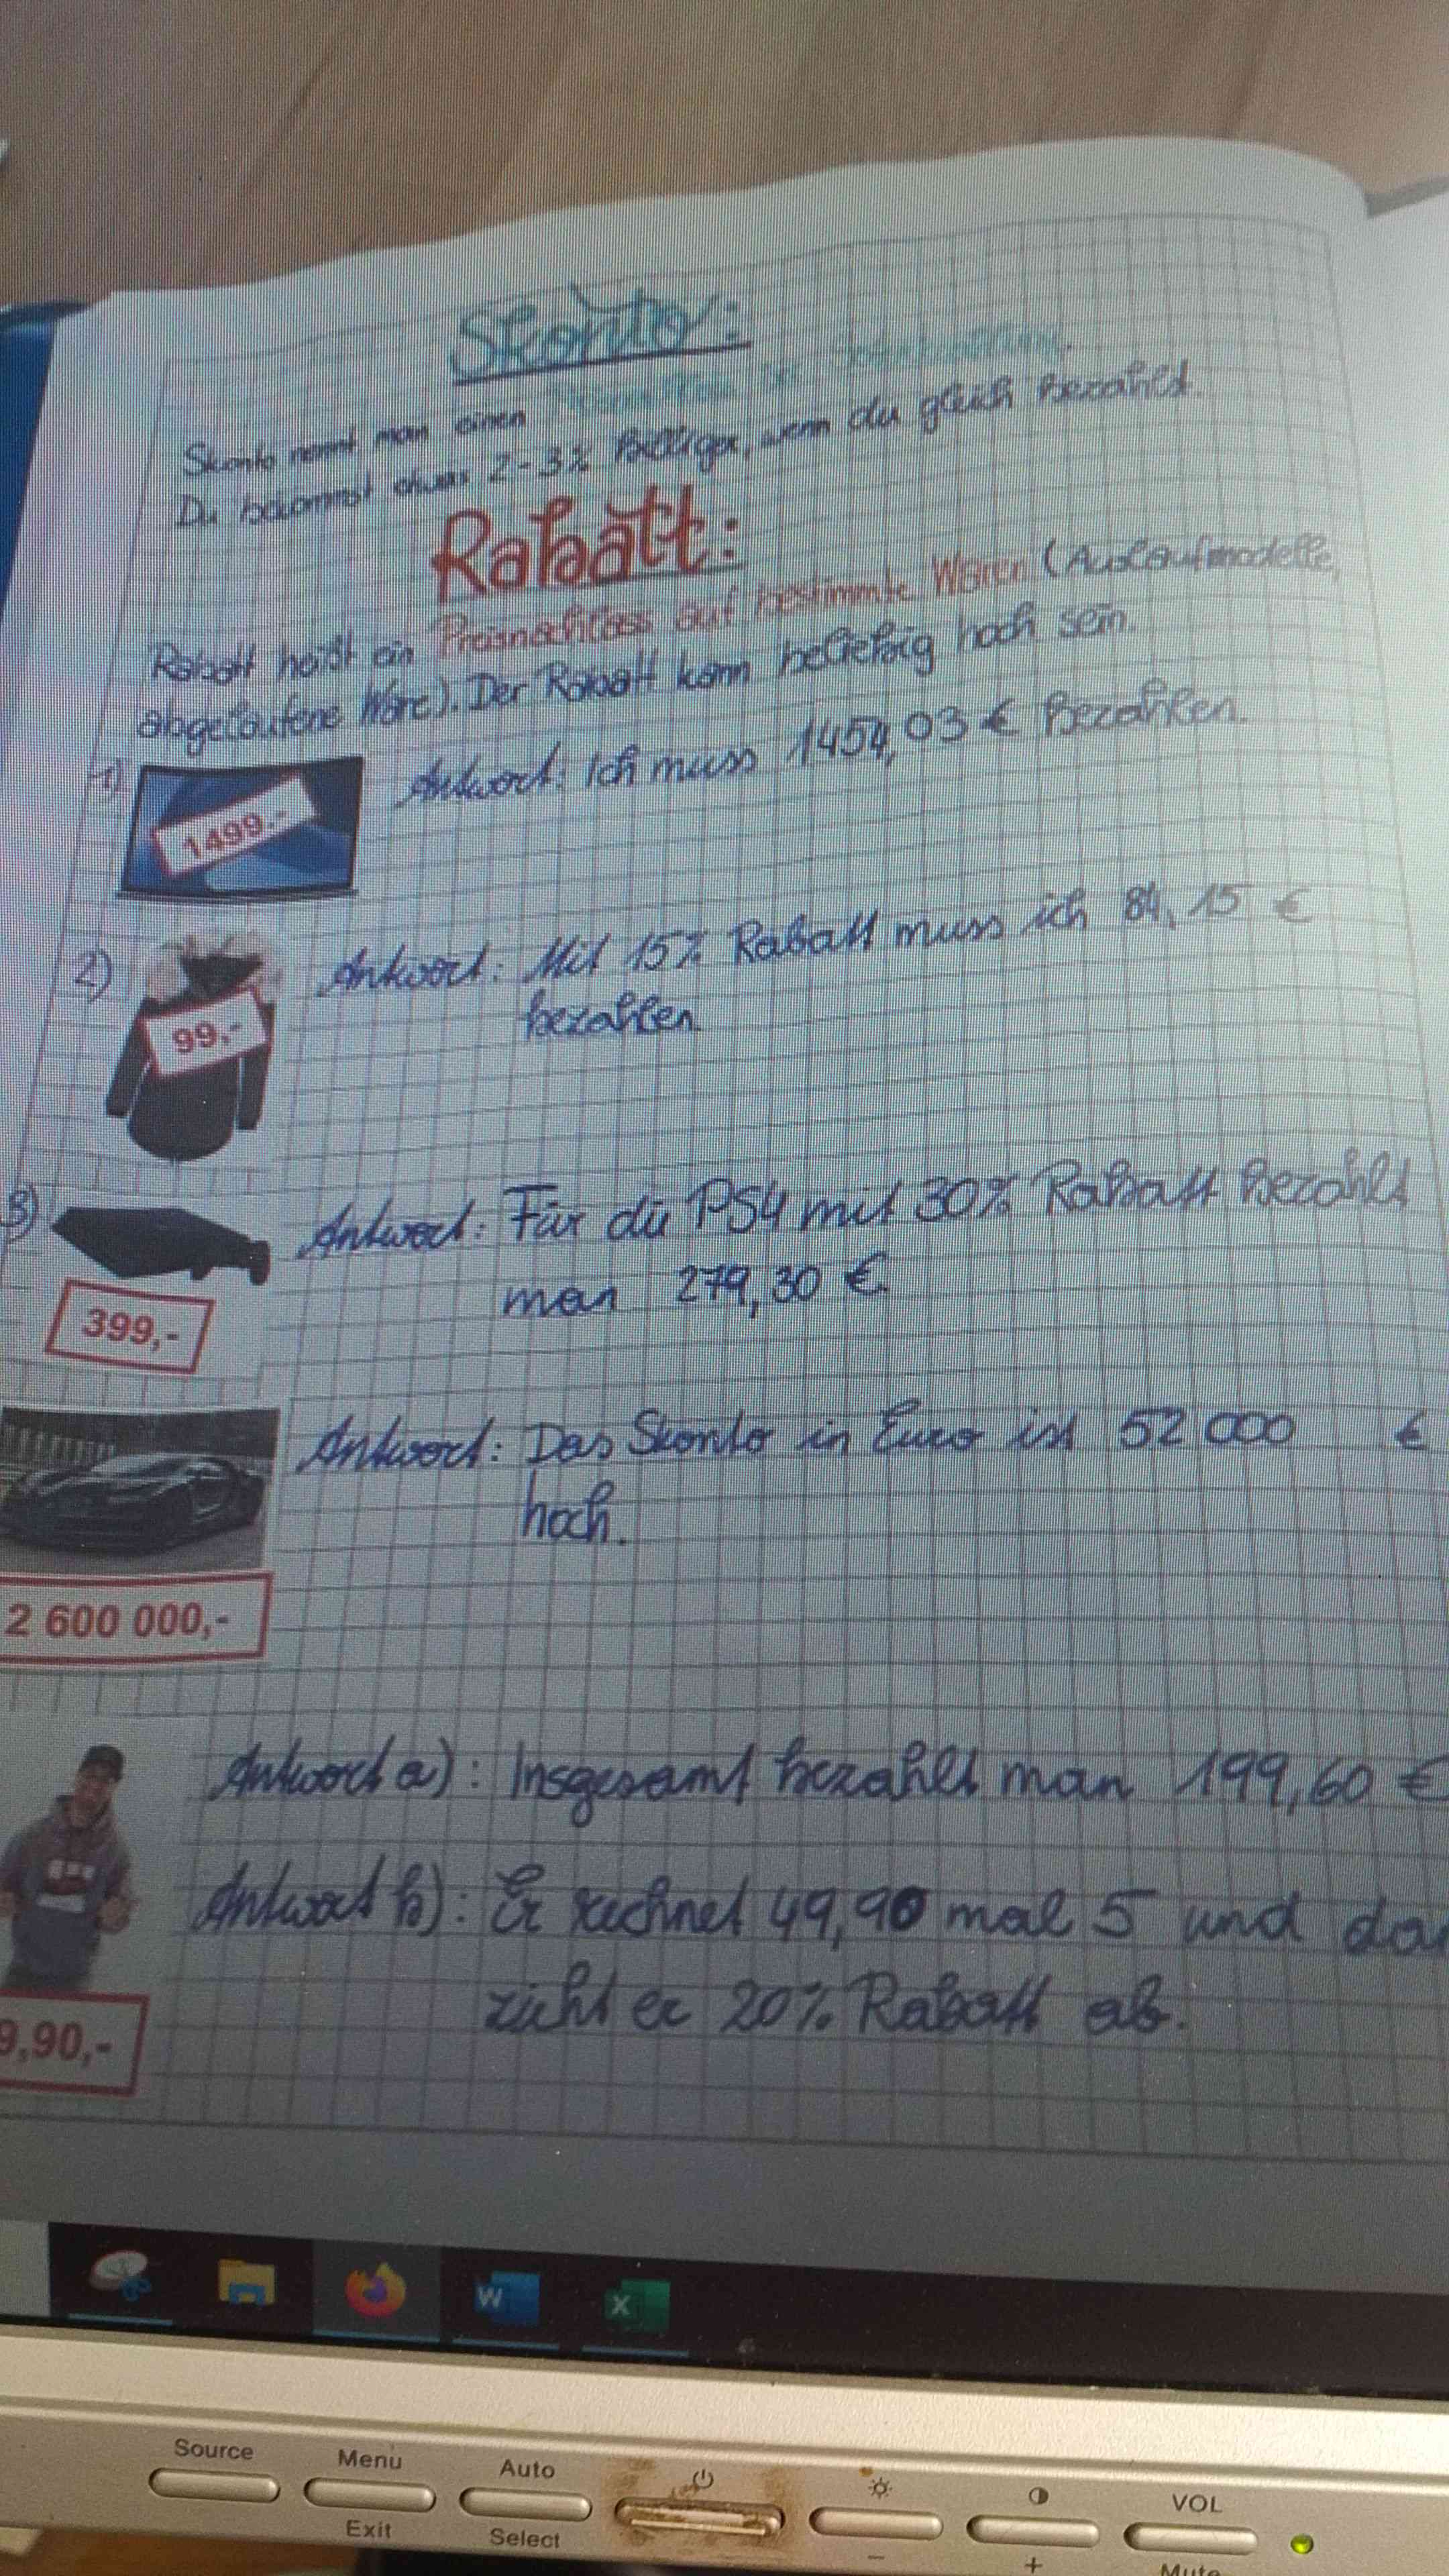 Skonto:
Skonto nennt man einen
Du bekommst etwas 2-3% billiger, wenn du gleich bezahlst.
Rabatt:
Rabatt heißt ein Preisnachlass auf bestimmte Waren (Auslaufmodelle,
abgelaufene Ware). Der Rabatt kann beliebig hoch sein.
1) 1499.- Antwort: Ich muss 1454,03 € bezahlen.
2) 99,- Antwort: Mit 15% Rabatt muss ich 84,15 €
bezahlen
3) Antwort: Für die PS4 mit 30% Rabatt bezahlt
man 279,30 €.
399,-
Antwort: Das Skonto in Euro ist 52 000 €
hoch.
2 600 000,-
Antwort a): Insgesamt bezahlt man 199,60 €
Antwort b): Er rechnet 49,90 mal 5 und da
zieht er 20% Rabatt ab.
9,90,-
W X
Source Menu Auto VOL
Exit Select - + Mute